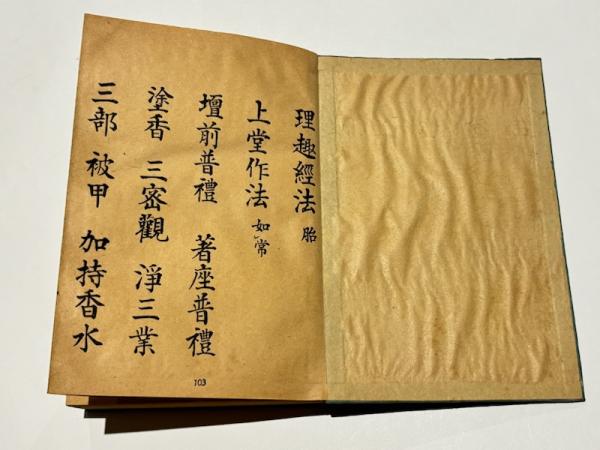 理趣經法 胎
上堂作法 如常
壇前普禮 著座普禮
塗香 三密觀 淨三業
三部 被甲 加持香水
103